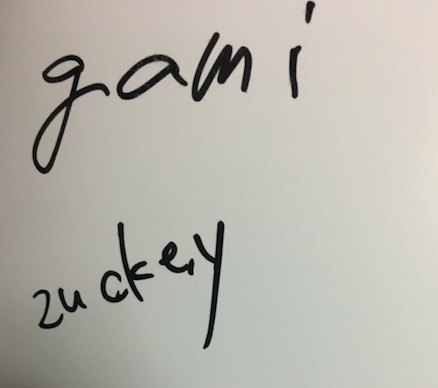 gami
zuckey